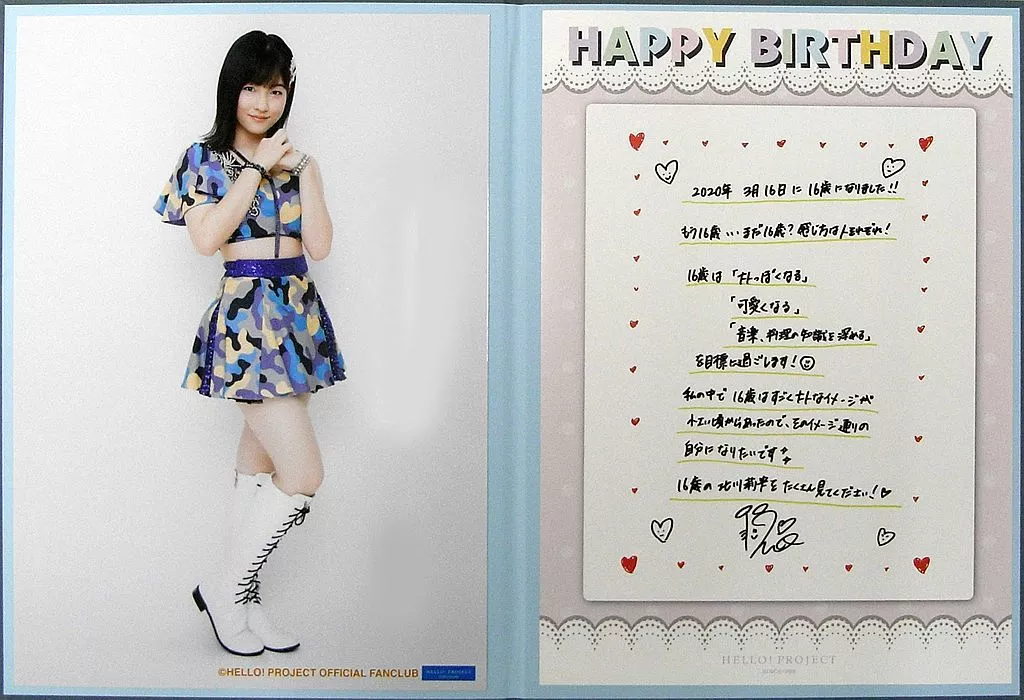 ©HELLO! PROJECT OFFICIAL FANCLUB
HELLO! PROJECT
HAPPY BIRTHDAY
2020年 3月16日に 16歳になりました!!
もう16歳…まだ16歳?感じ方は人それぞれ!
16歳は「大人っぽくなる」
「可愛くなる」
「音楽、料理の知識を深める」
を目標に過ごします!
私の中で 16歳はすごく大人なイメージが
小エい頃からあったので、そのイメージ通りの
自分になりたいです
16歳の 北川莉央を たくさん見てください!
HELLO! PROJECT